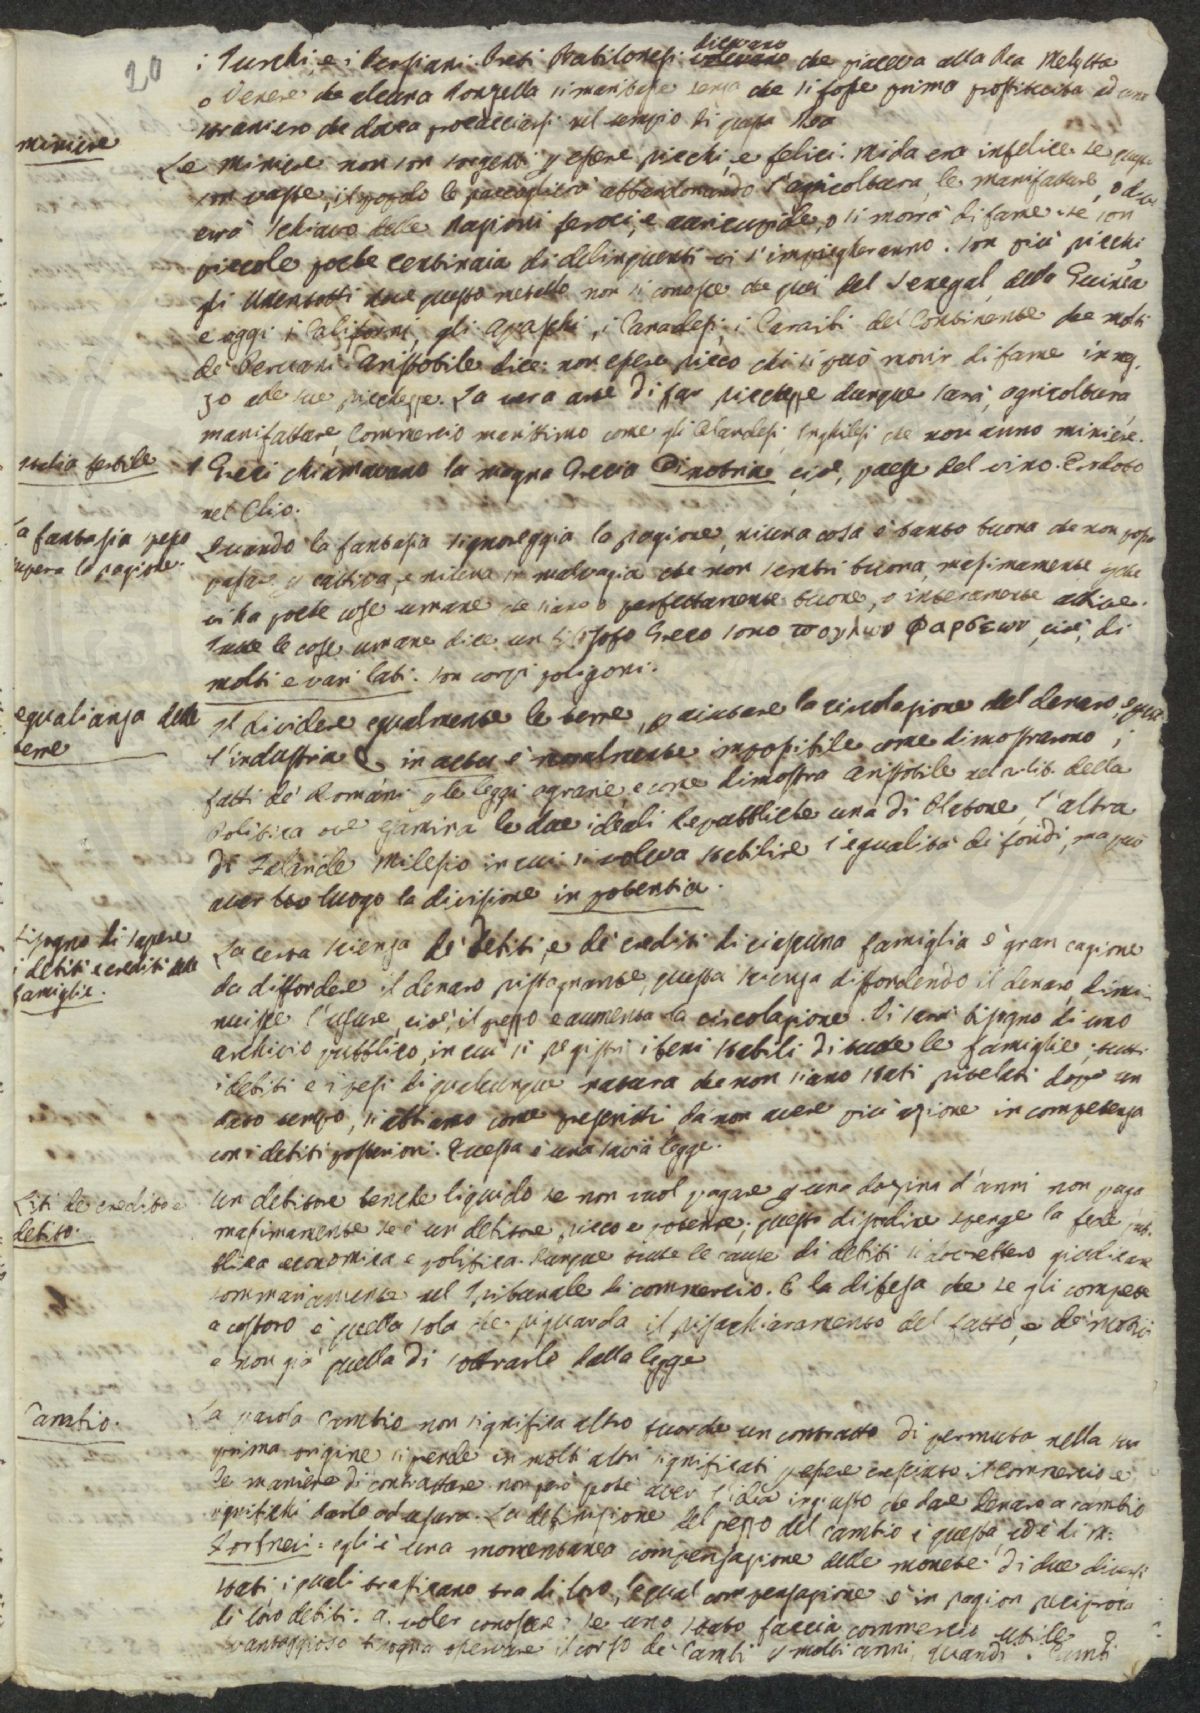 20
i Turchi, e i Persiani. Preti Babilonesi dicevano che piaceva alla Dea Melytta
o Venere che alcuna Donzella si maritasse senza che si fosse prima prostituita ad uno
straniero che dovea procacciarsi nel tempio di questa Dea
miniere
Le miniere non son sorgenti p essere ricchi, e felici. Mida era infelice. se
son vaste, il popolo le raccoglierà abbandonando l'agricoltura, le manifatture, o
schiavo delle Nazioni feroci, e auricupide, o si morrà di fame. se son
piccole poche centinaia di delinquenti vi s'impiegheranno. son più ricchi
gli Utentotti dove questo metallo non si conosce che quei del Senegal, della Guinea
e oggi i Californj, gli Apaschi, i Canadesi, i Caraibi del Continente che molti
de' Peruani. Aristotile dice: non essere ricco chi si può morir di fame in mez-
zo alle sue ricchezze. La vera arte di far ricchezze dunque sarà, agricoltura,
manifatture, Commercio marittimo come gli Olandesi, Inghilesi che non anno miniere.
Italia fertile
I Greci chiamavano la magna Grecia Oinotria, cioè, paese del vino. Erodoto
nel Clio.
La fantasia spesso
supera la ragione.
Quando la fantasia signoreggia la ragione, niuna cosa è tanto buona che non possa
passare p cattiva, e niuna sì malvagia che non sembri buona, massimamente che
ci ha poche cose umane che siano o perfettamente buone, o interamente cattive.
Tutte le cose umane dice un filosofo Greco sono, πογλων Φαρσεων, cioè, di
molti e vari lati. son corpi poligoni.
egualianza delle
terre
Il dividere egualmente le terre, p aiutare la circolazione del denaro, e
l'industria in actu è moralmente impossibile come dimostrarono i
fatti de' Romani p le leggi agrarie, e come dimostra Aristotile nel 2 lib. della
Politica ove esamina le due ideali Repubbliche una di Platone, l'altra
di Falande Milesio in cui si voleva stabilire l'egualità di fondi, ma può
aver luogo la divisione in potentia.
bisogno di sapere
i debiti e crediti delle
famiglie.
La certa scienza de' debiti, e de' crediti di ciascuna famiglia è gran cagione
da diffondere il denaro ristagnante, questa scienza diffondendo il denaro dimi-
nuisce l'usure, cioè, il prezzo e aumenta la circolazione. Vi sarà bisogno di uno
archivio pubblico, in cui si registri i beni stabili di tutte le famiglie; tutti
i debiti e i pesi di qualunque natura che non siano stati rivelati dopo un
dato tempo, si abbiano come prescritti da non avere più azione in competenza
con i debiti posteriori. Questa è una savia legge.
Liti de credito e
debito.
Un debitore benche liquido se non vuol pagare p una dozina d'anni non paga
massimamente se è un debitore ricco e potente; questo disordine spenge la fede pub-
blica economica e politica. dunque tutte le cause di debiti si dovrebbero giudicare
sommariamente nel Tribunale di commercio. E la difesa che se gli compete
a costoro è quella sola che riguarda il rischiaramento del fatto, e de' motivi
e non già quella di sottrarlo dalla legge
Cambio.
La parola Cambio non significa altro se un contratto di permuta nella sua
prima origine si prende in molti altri significati p essere cresciuto il Commercio e
le maniere di contrattare non però potè aver l'idea ingiusto che dare denaro a cambio
significhi darlo ad usura. La definizione del prezzo del cambio è questa, ed è di
Forbnei: egli è una momentanea compensazione delle monete di due diversi
stati, i quali trafficano tra di loro, la qual compensazione è in ragion reciproca
di loro debiti. a voler conoscere se uno stato faccia commercio utile
vantaggioso bisogna osservare il corso de' Cambi p molti anni, quandi i Cambi